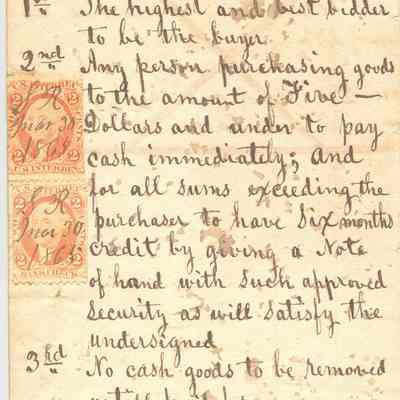 1st The highest and best bidder
to be the buyer
2nd Any person purchasing goods
to the amount of Five —
Dollars and under to pay
cash immediately; and
for all sums exceeding the
purchaser to have Six months
credit by giving a Note
of hand with such approved
security as will satisfy the
undersigned
3rd No cash goods to be removed
until
2 2
S R
30
1865
U.S. INTER.REV.
2 2
S R
30
1865
BANK CHECK